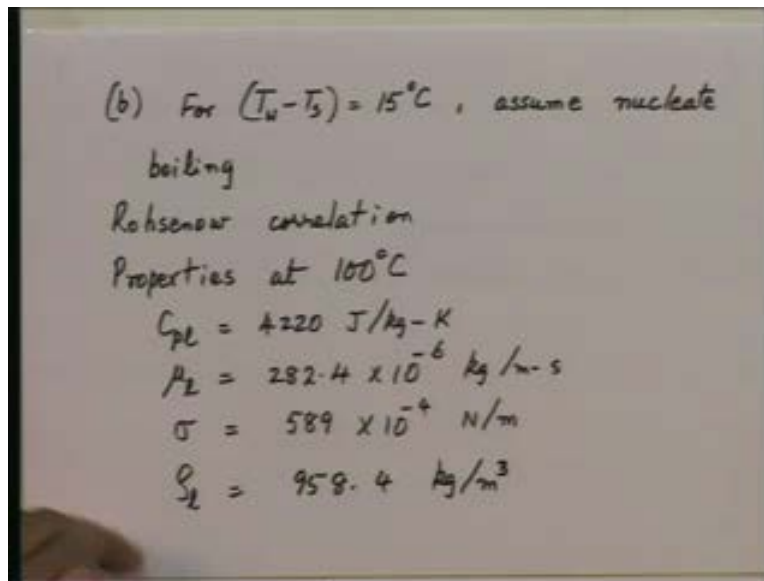 (b) For (T_w-T_s) = 15°C , assume nucleate
boiling
Rohsenow correlation
Properties at 100°C
C_pl = 4220 J/kg-K
μ_l = 282.4 x 10^-6 kg/m-s
σ = 589 x 10^-4 N/m
ρ_l = 958.4 kg/m^3